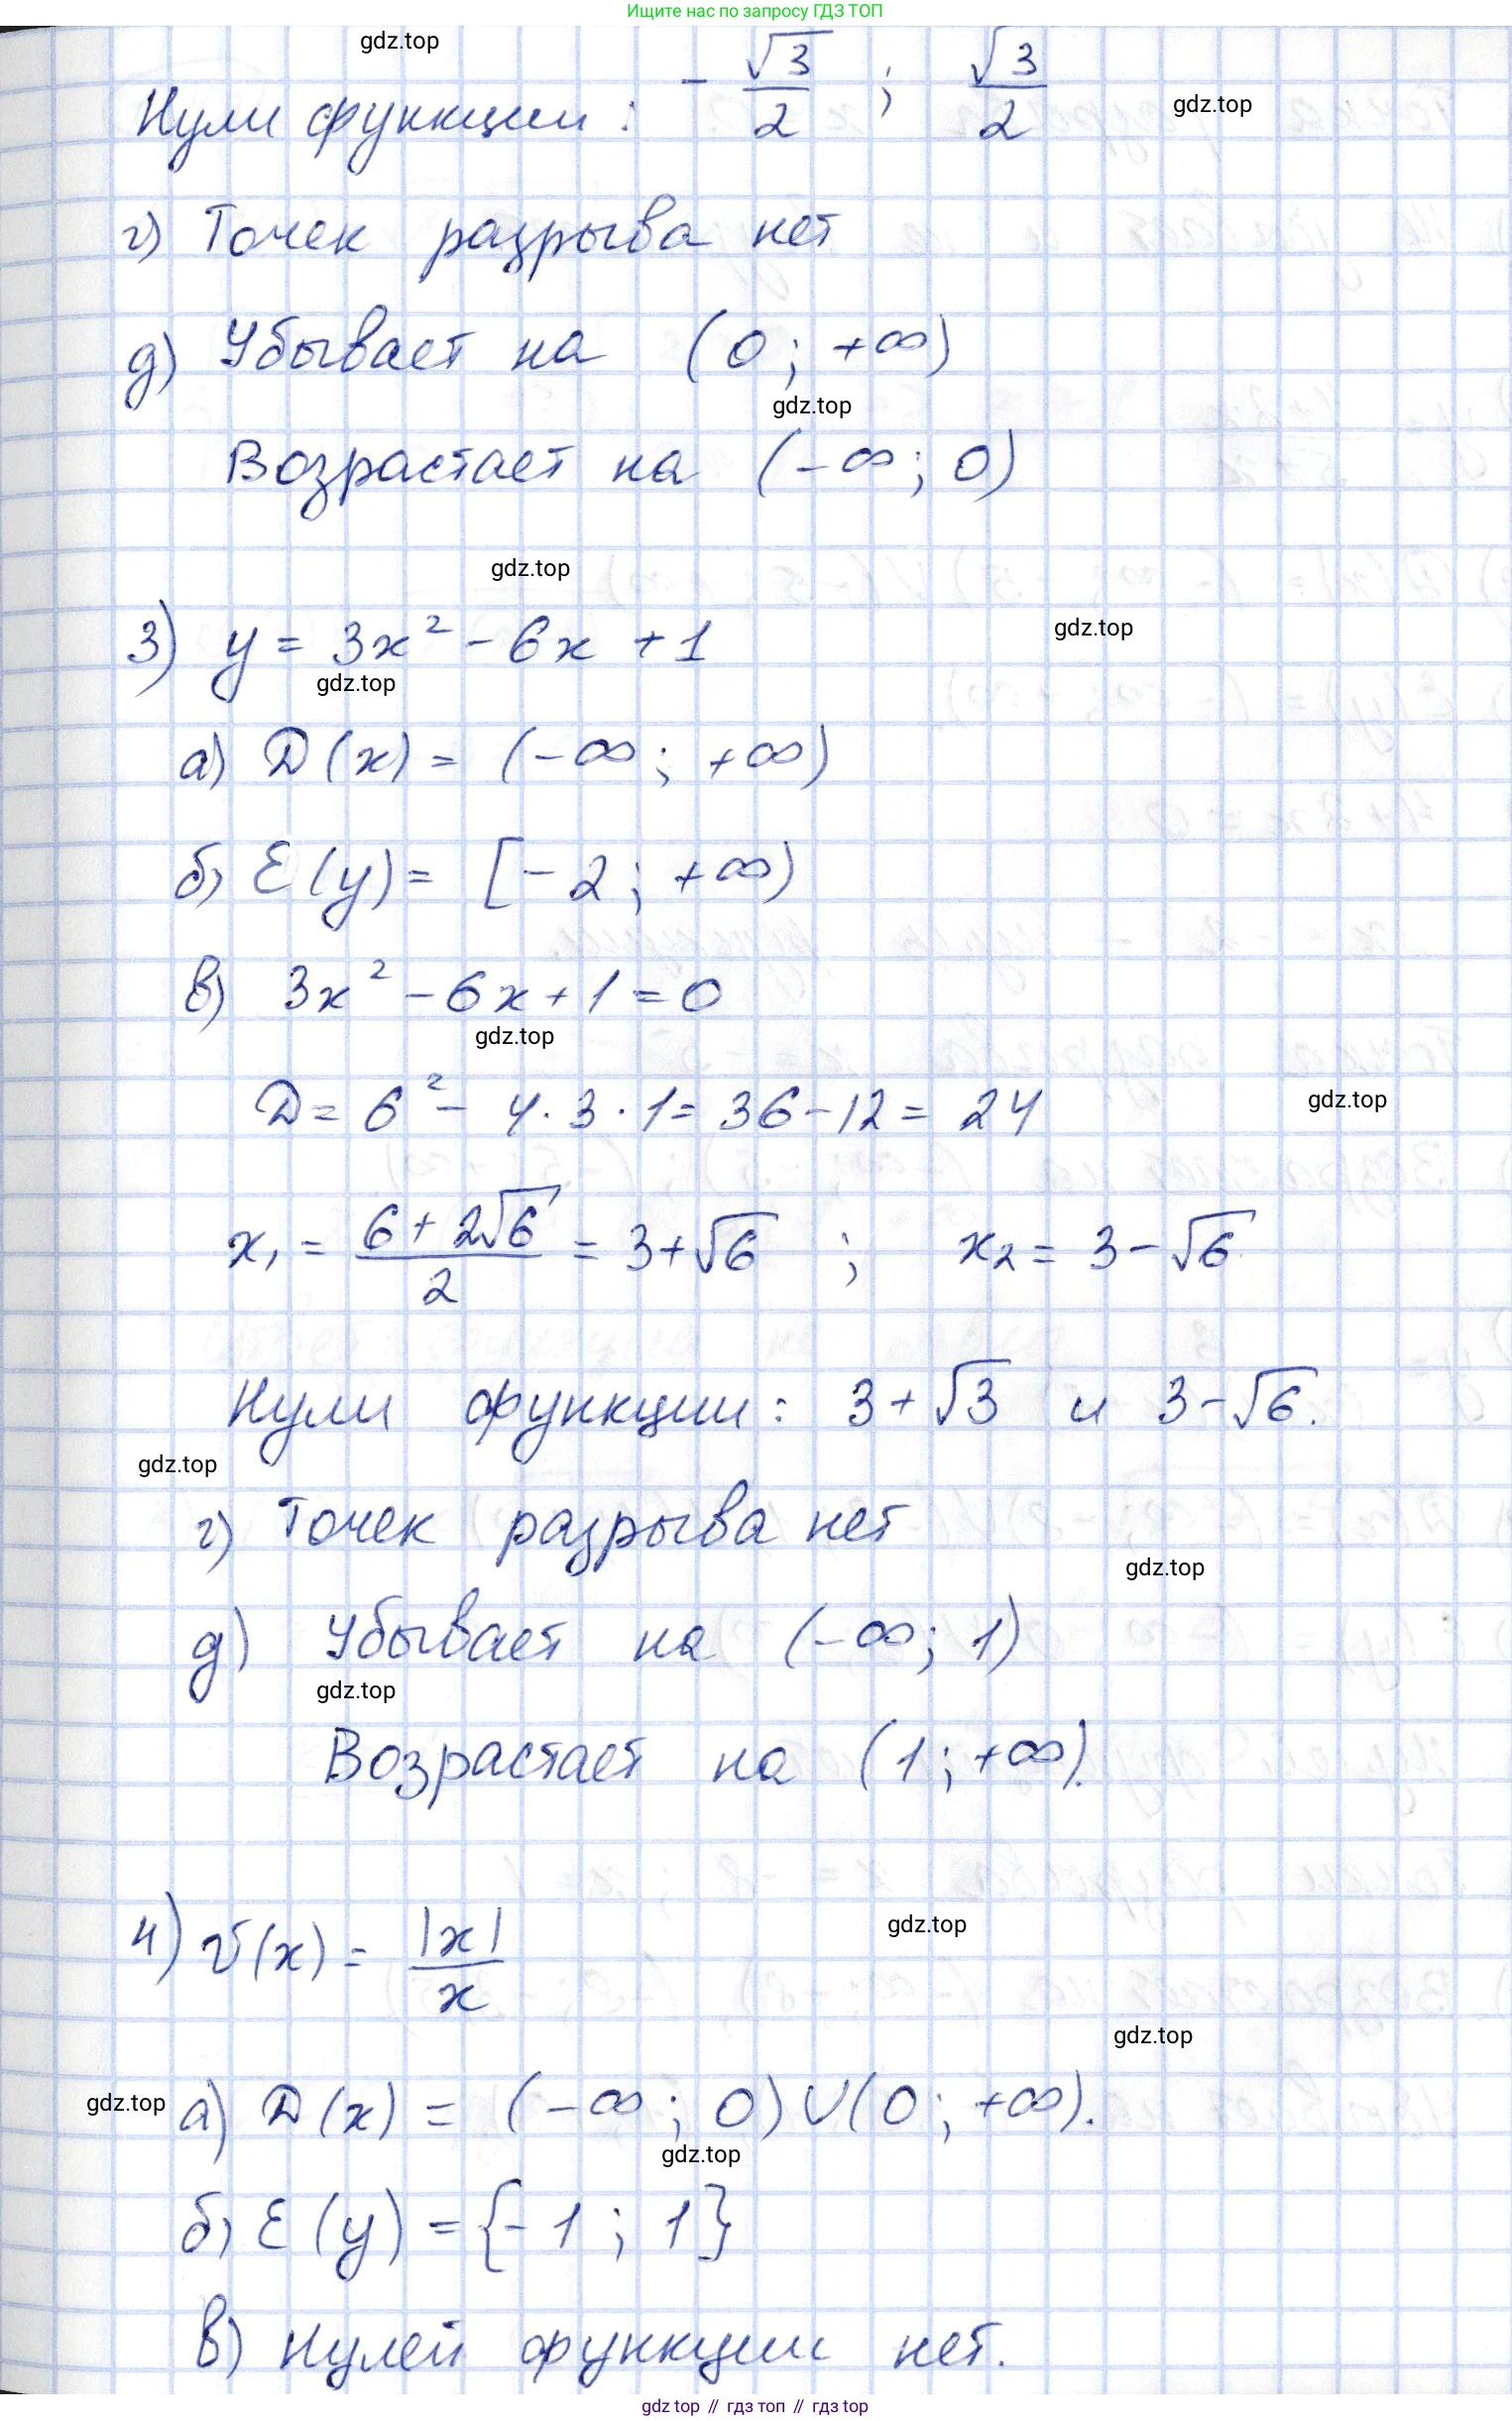 Ищите нас по запросу ГДЗ ТОП
gdz.top
Нули функции: - √3/2 ; √3/2
gdz.top
г) Точек разрыва нет
д) Убывает на (0; +∞)
gdz.top
Возрастает на (-∞; 0)
gdz.top
gdz.top
3) y = 3x² - 6x + 1
gdz.top
а) D(x) = (-∞; +∞)
б) E(y) = [-2; +∞)
в) 3x² - 6x + 1 = 0
gdz.top
D = 6² - 4·3·1 = 36 - 12 = 24
gdz.top
x₁ = (6 + 2√6)/2 = 3 + √6 ; x₂ = 3 - √6
Нули функции: 3 + √3 и 3 - √6.
gdz.top
г) Точек разрыва нет
gdz.top
д) Убывает на (-∞; 1)
gdz.top
Возрастает на (1; +∞).
gdz.top
4) v(x) = |x|/x
gdz.top
gdz.top
а) D(x) = (-∞; 0) ∪ (0; +∞).
gdz.top
б) E(y) = {-1; 1}
в) Нулей функции нет.
gdz.top // гдз топ // гдз top